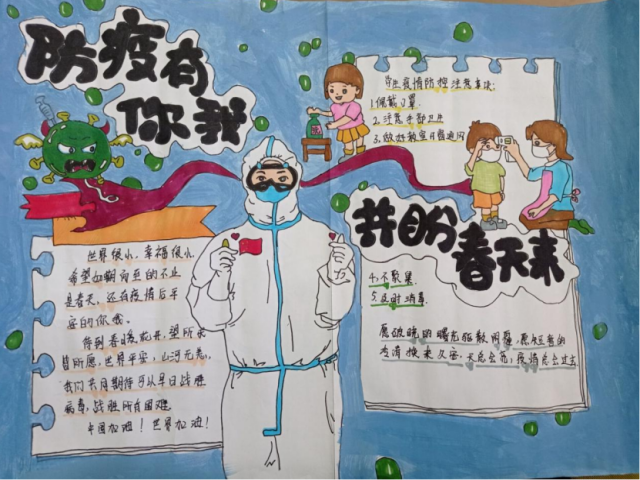 防疫有
你我
学生疫情防控注意事项:
1.佩戴口罩
2.注意手部卫生
3.做好教室日常通风
共盼
春天来
4.不聚集
5.及时消毒
世界很小,幸福很小
希望如期而至的不止
是春天,还有疫情后平
安的你我。
待到春暖花开,望所求
皆所愿,世界平安,山河无恙,
我们共同期待可以早日战胜
病毒,战胜所有困难
中国加油!世界加油!
愿破晓的曙光驱散阴霾,愿短暂的
冷清换来久安,天总会亮,疫情总会过去